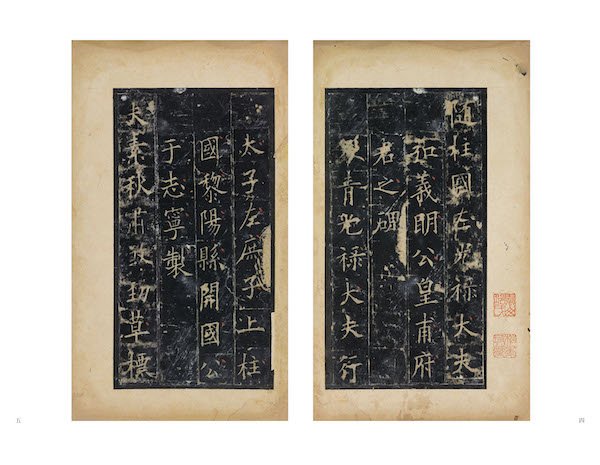 隨柱國左光祿大夫
弘義明公皇甫府
君之碑
青光祿大夫行
太子左庶子上柱
國黎陽縣開國公
于志寧製
夫素秋勁草標
四
五